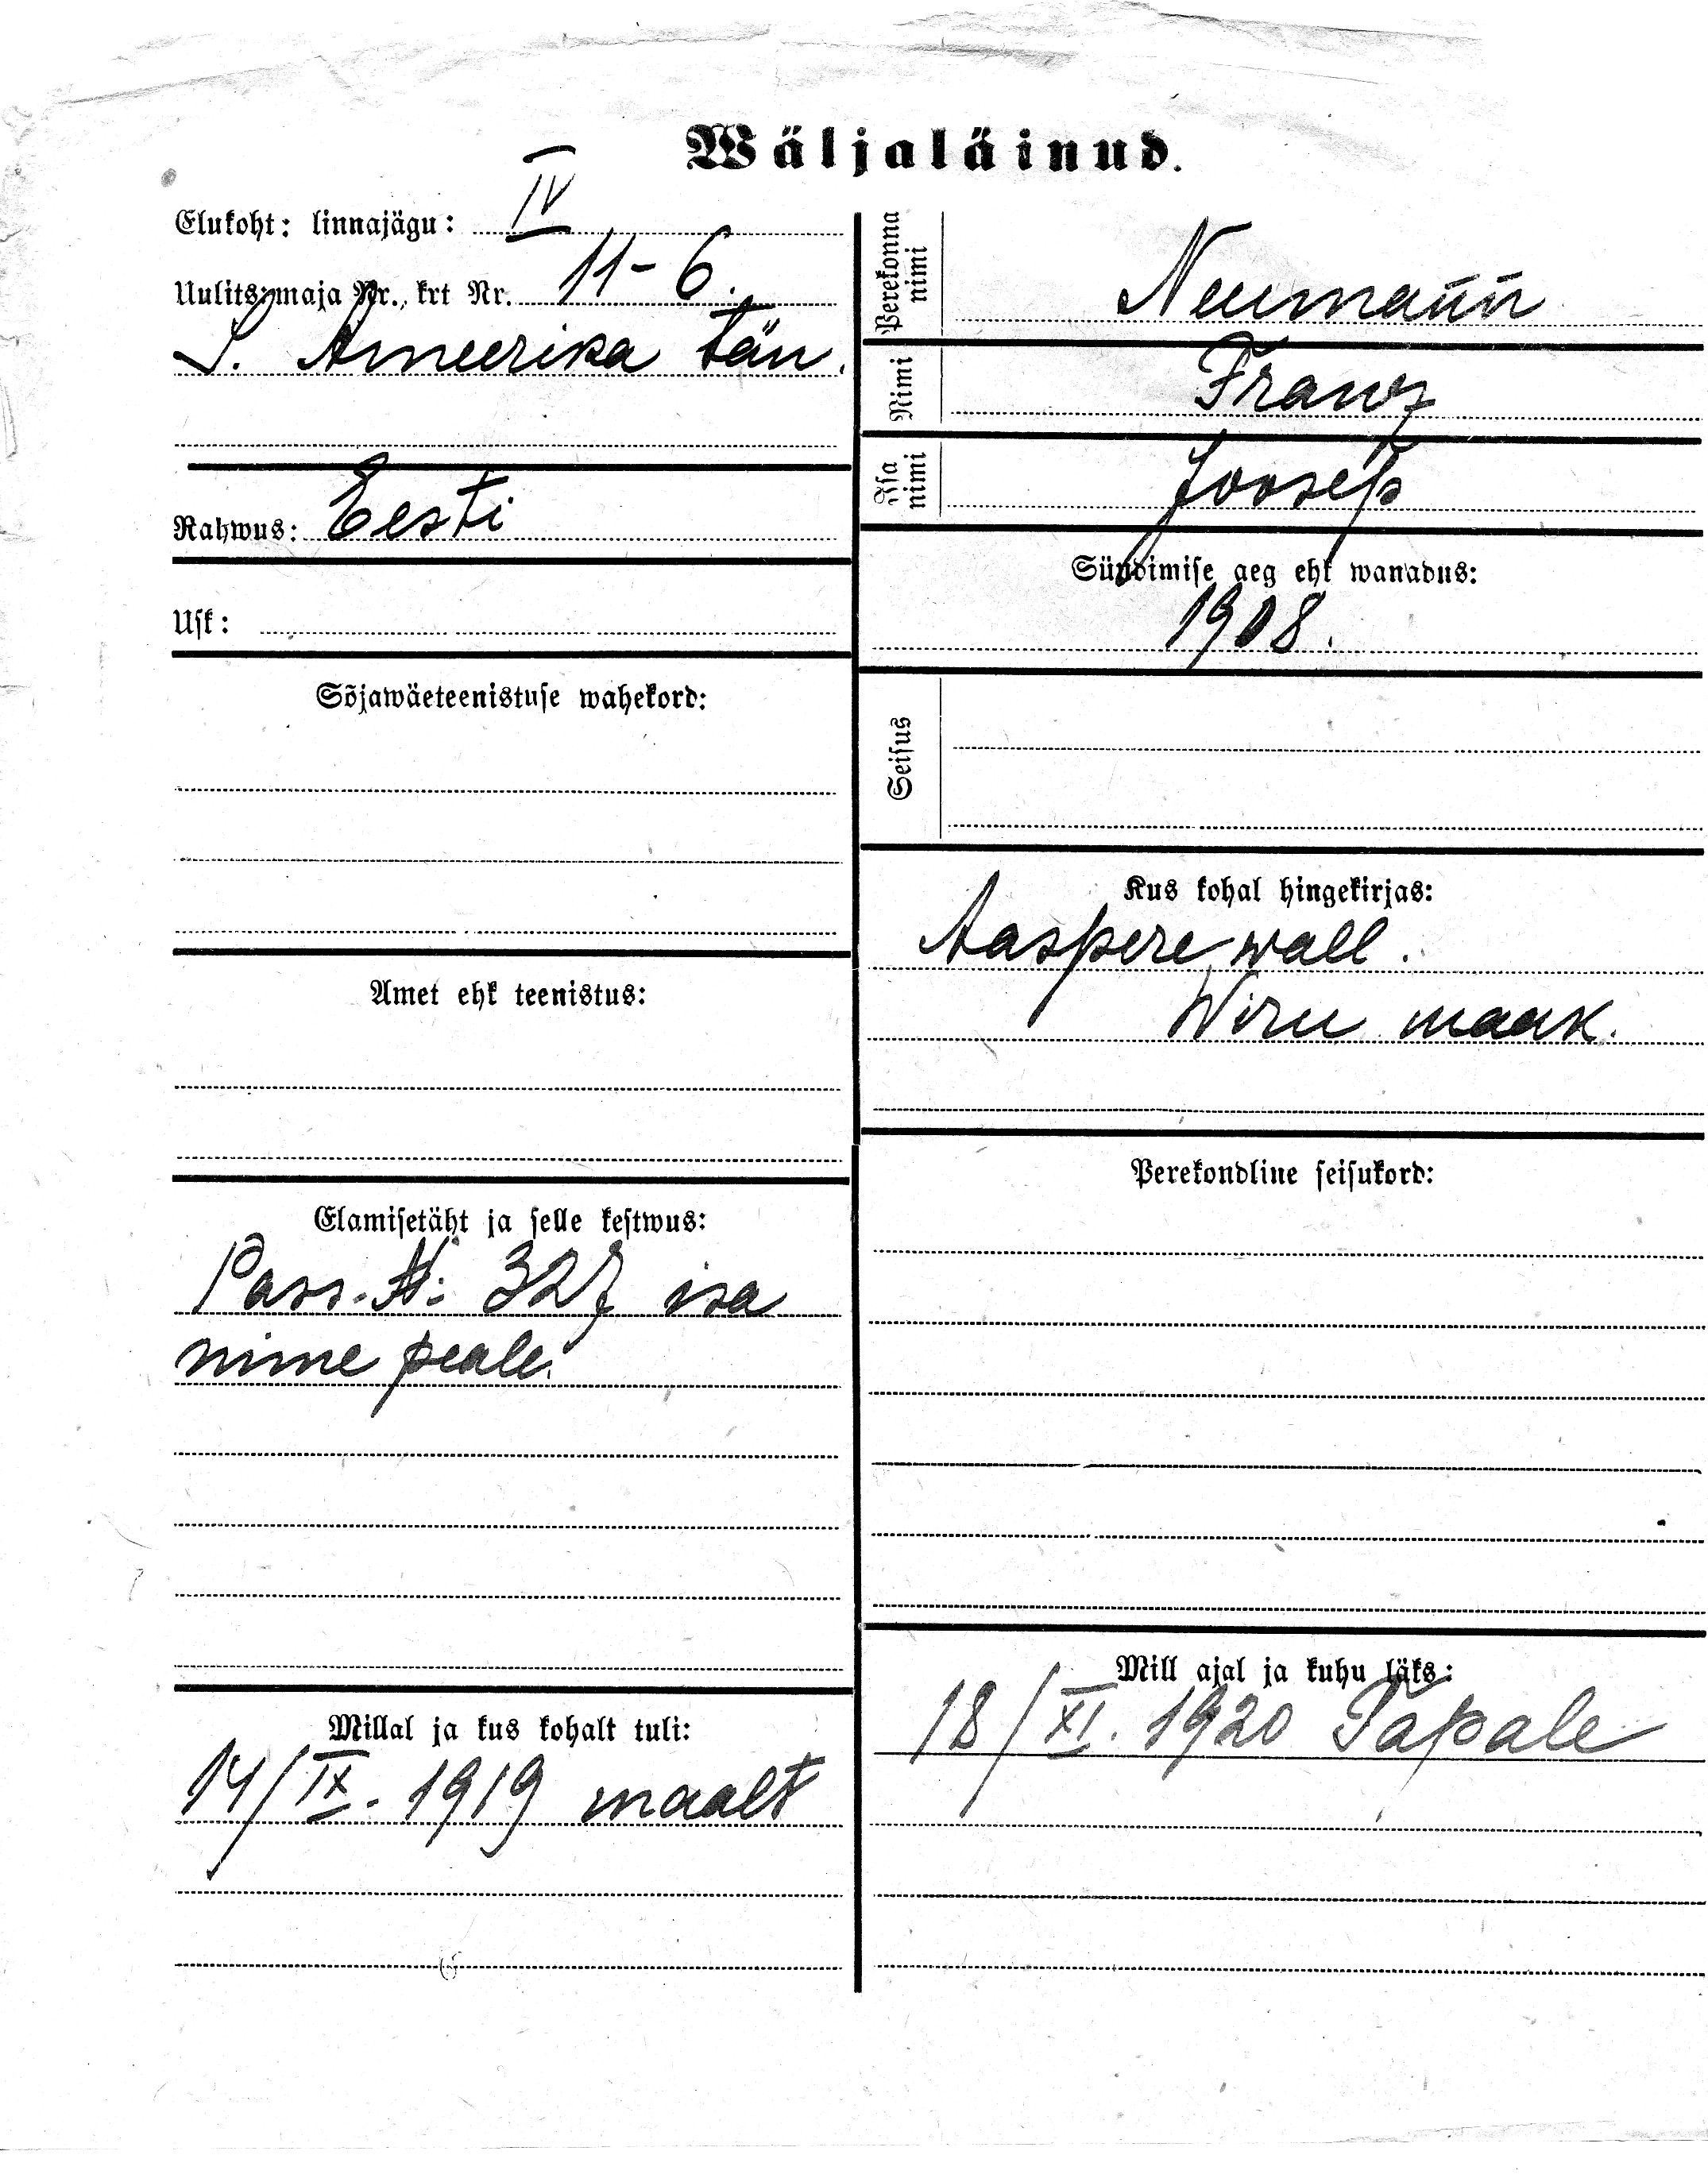 Wäljaläinud.
Elukoht: linnajägu: IV
Uulits, maja Nr., krt Nr. 11-6.
S. Ameerika tän.
Rahwus: Eesti
Usk:
Sõjawäeteenistuse wahekord:
Amet ehk teenistus:
Elamisetäht ja selle kestwus:
Pass. N: 327 isa
nime peale.
Millal ja kus kohalt tuli:
14/IX. 1919 maalt
Perekonna nimi Neumann
Nimi Franz
Isa nimi Joosep
Sündimise aeg ehk wanadus:
1908.
Seisus
Kus kohal hingekirjas:
Aaspere wall.
Wiru maak.
Perekondline seisukord:
Mill ajal ja kuhu läks:
18/XI. 1920 Tapale